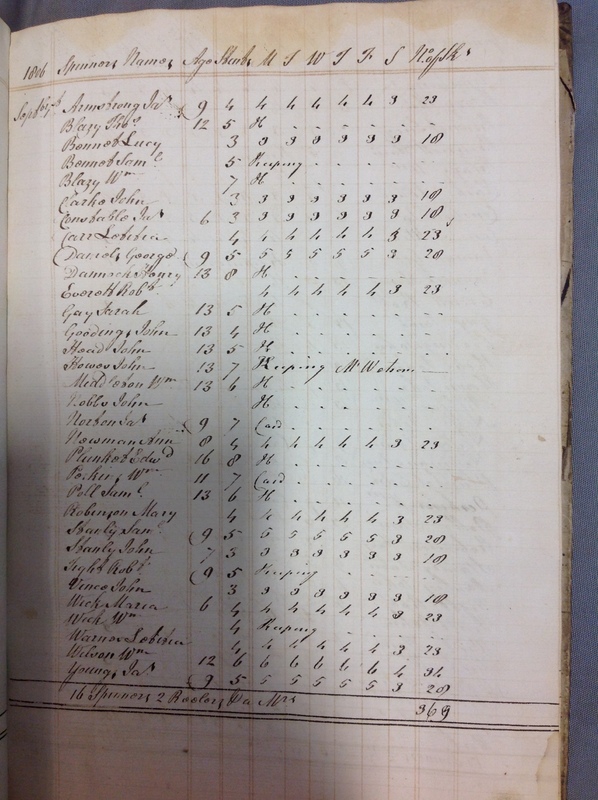 1806 Spinners Names Age Stint M T W T F S No. of Sks
Sept 6th Armstrong Jas 9 4 4 4 4 4 4 3 23
Blazy Thos 12 5 H - - - - - -
Bennet Lucy 3 3 3 3 3 3 3 18
Bennet Saml. 5 Keeping - - - -
Blazy Wm 7 H - - - - - -
Clarke John 3 3 3 3 3 3 3 18
Constable Jas 6 3 3 3 3 3 3 3 18
Carr Letitia 4 4 4 4 4 4 3 23
Daniels George 9 5 5 5 5 5 5 3 28
Dannock Henry 13 8 H - - - - - -
Everett Robt. 4 4 4 4 4 3 23
Gay Sarah 13 5 H - - - - - -
Gooding John 13 4 H - - - - - -
Head John 13 5 H - - - - - -
Howes John 13 7 Keeping Mr Watson
Middleton Wm 13 6 H - - - - - -
Nobbs John H - - - - - -
Norton Jas 9 7 Card - - - - -
Newman Ann 8 4 4 4 4 4 4 3 23
Plunket Edwd 16 8 H - - - - - -
Perkins Wm 11 7 Card - - - - -
Poll Saml. 13 6 H - - - - - -
Robinson Mary 4 4 4 4 4 4 3 23
Stanly Saml. 9 5 5 5 5 5 5 3 28
Stanly John 7 3 3 3 3 3 3 3 18
Tight Robt. 9 5 Keeping - - - -
Vince John 3 3 3 3 3 3 3 18
Wick Maria 6 4 4 4 4 4 4 3 23
Wick Wm 4 Keeping - - - -
Warnes Letitia 4 4 4 4 4 4 3 23
Wilson Wm 12 6 6 6 6 6 6 4 34
Young Jas 9 5 5 5 5 5 5 3 28
16 Spinners 2 Reelers 369